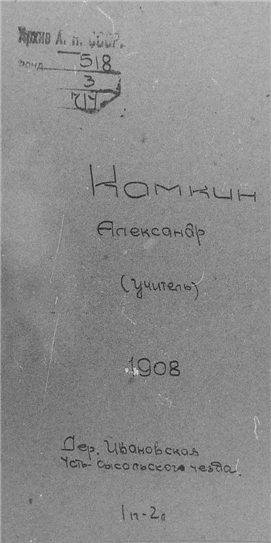 Архив А. Н. СССР.
Фонд 518
3
717
Камкин
Александр
(учитель)
1908
Дер. Ивановская
Усть-Сысольского уезда.
1 п-2 л